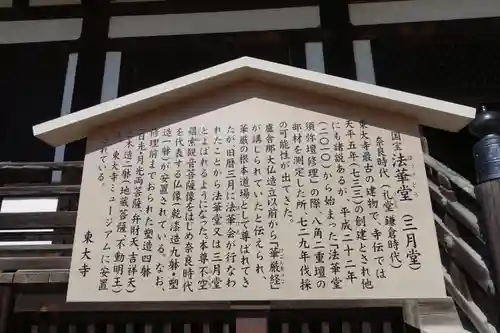 国宝 法華堂（三月堂）
奈良時代（礼堂 鎌倉時代）
東大寺最古の建物で、寺伝では
天平五年（七三三）の創建とされ他
にも諸説あるが、平成二十二年
（二〇一〇）から始まった「法華堂
須弥壇修理」の際、八角二重壇の
部材を測定した所、七二九年伐採
の可能性が出てきた。
盧舎那大仏造立以前から『華厳経』
が講じられていたと伝えられ、
華厳の根本道場として尊ばれてき
たが、旧暦三月に法華会が行なわ
れたことから法華堂又は三月堂
とよばれるようになった。本尊不空
羂索観音菩薩像をはじめ奈良時代
を代表する仏像（乾漆造九躰・塑
造一躰）が安置されている。なお、
修理前までおられた塑造四躰
（日光・月光菩薩、弁財天、吉祥天）
と木造二躰（地蔵菩薩、不動明王）
は、東大寺ミュージアムに安置
されている。
東大寺